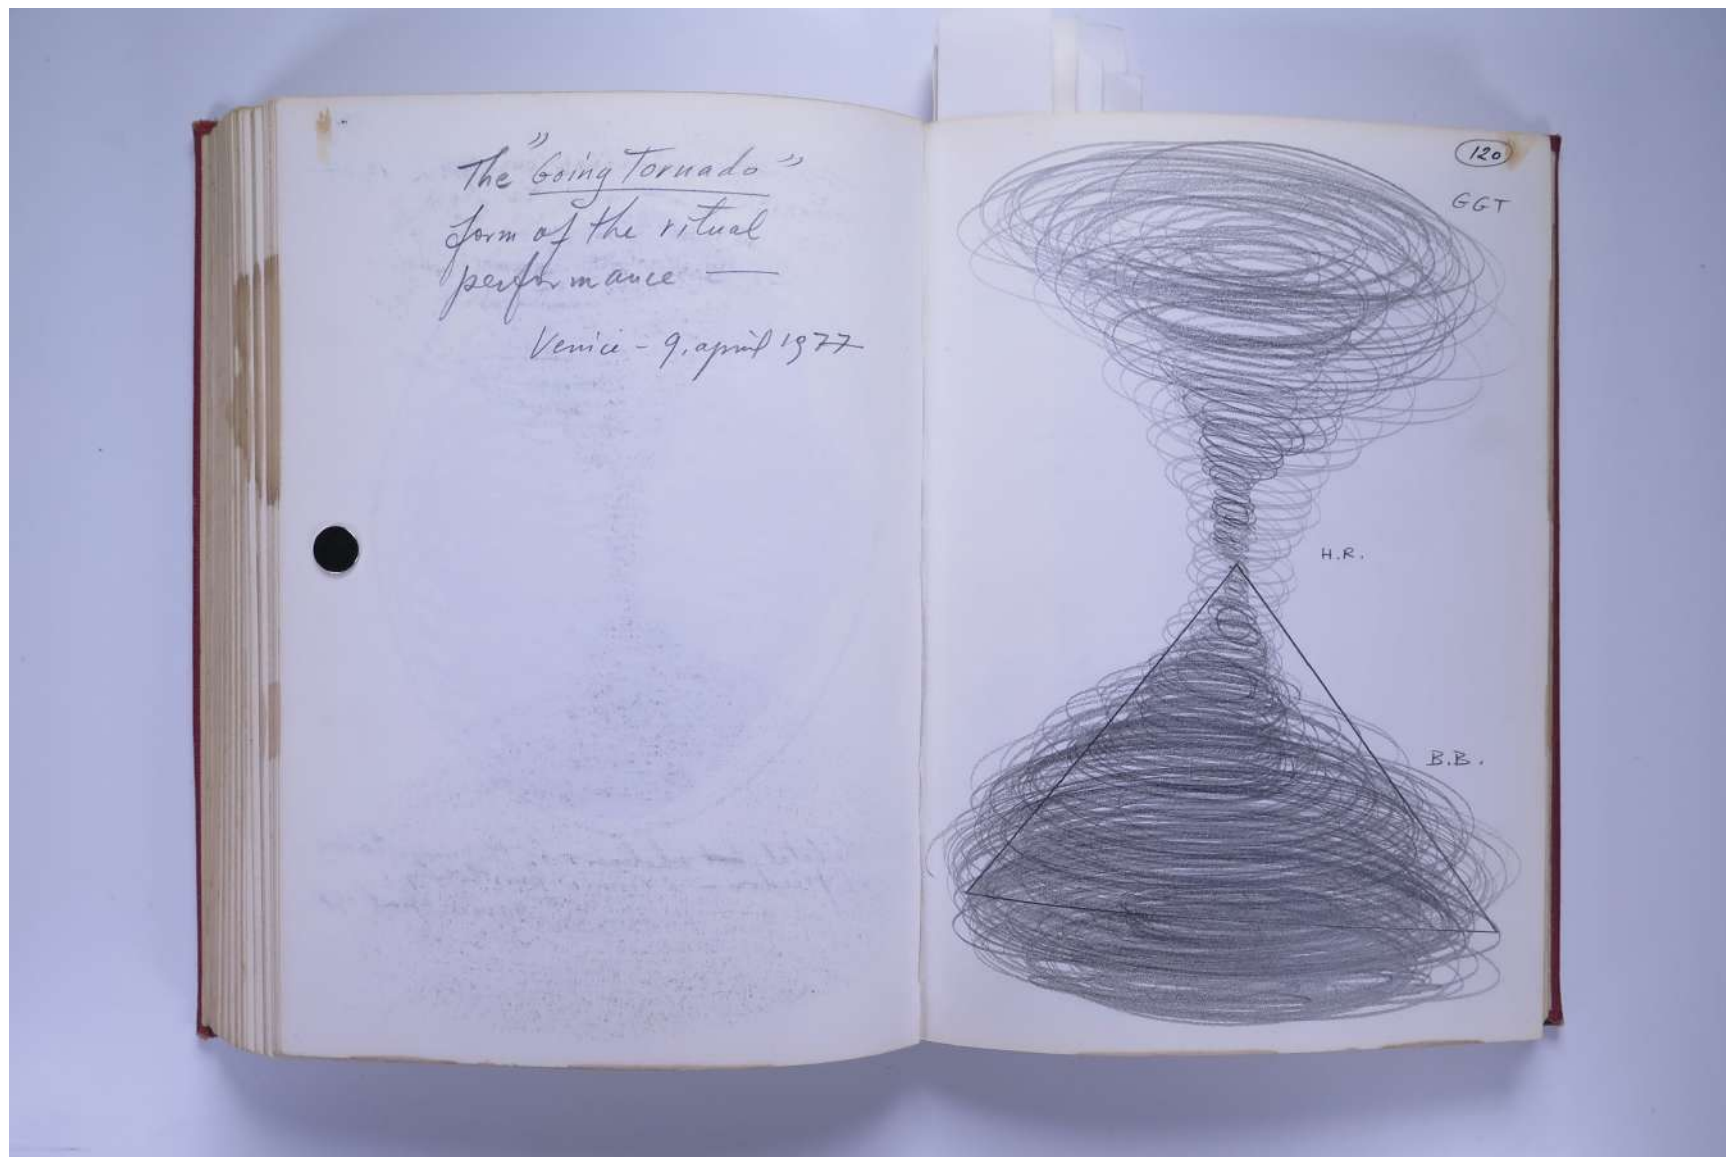 The "Going Tornado"
form of the ritual
performance —
Venice - 9. april 1977
120
GGT
H.R.
B.B.